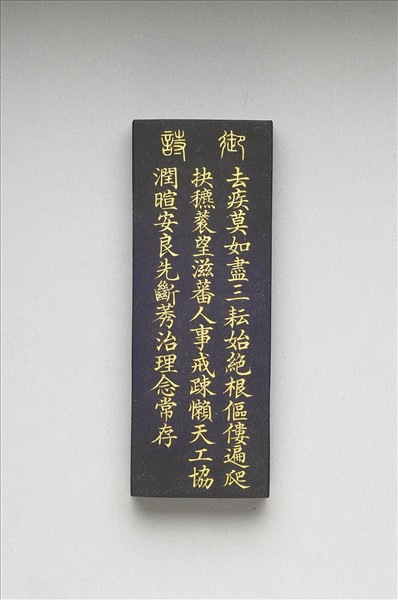 御詩
去疾莫如盡三耘始絶根傴僂遍爬
抉穮蔉望滋蕃人事戒疎懶天工協
潤暄安良先斷莠治理念常存